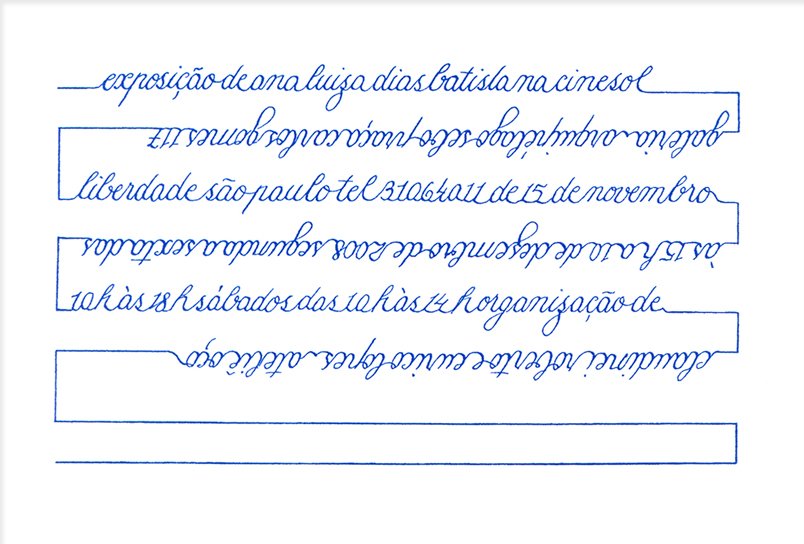 exposição de ana luiza dias batista na cinesol
galeria arquipélago sebo praça carlos gomes 117
liberdade são paulo tel 31064011 de 15 de novembro
às 15h a 10 de dezembro de 2008 segunda a sexta das
10h às 18h sábados das 10h às 14h organização de
claudinei roberto e eurico lopes ateliê oço